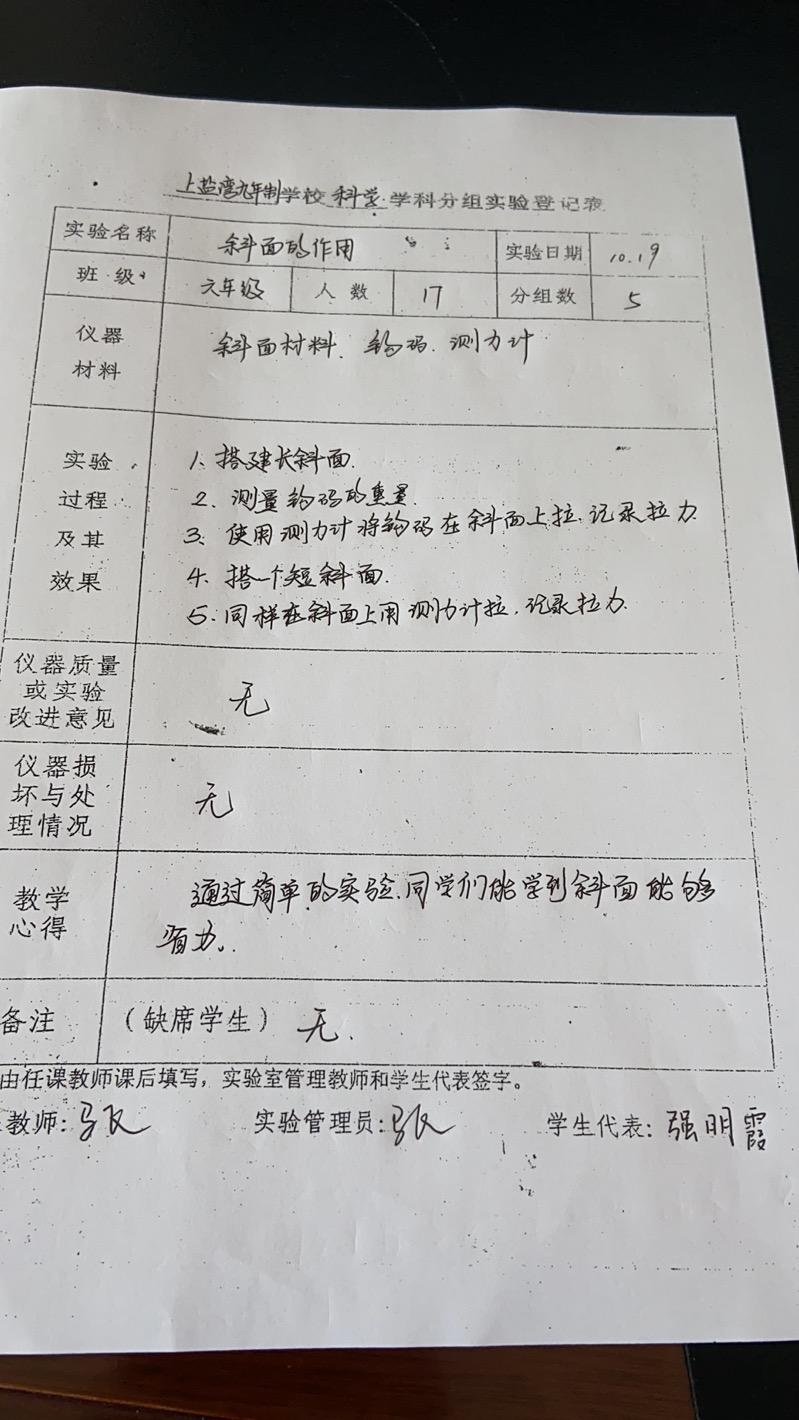 上盐湾九年制学校 科学 学科分组实验登记表
实验名称 斜面的作用 实验日期 10.19
班级 六年级 人数 17 分组数 5
仪器 斜面材料、钩码、测力计
材料
实验 1、搭建长斜面.
过程 2、测量钩码的重量.
及其 3、使用测力计将钩码在斜面上拉,记录拉力
效果 4、搭一个短斜面.
5、同样在斜面上用测力计拉,记录拉力.
仪器质量
或实验 无
改进意见
仪器损
坏与处 无
理情况
教学 通过简单的实验,同学们能学到斜面能够
心得 省力。
备注 (缺席学生) 无.
由任课教师课后填写,实验室管理教师和学生代表签字。
教师: 实验管理员: 学生代表: 强明霞